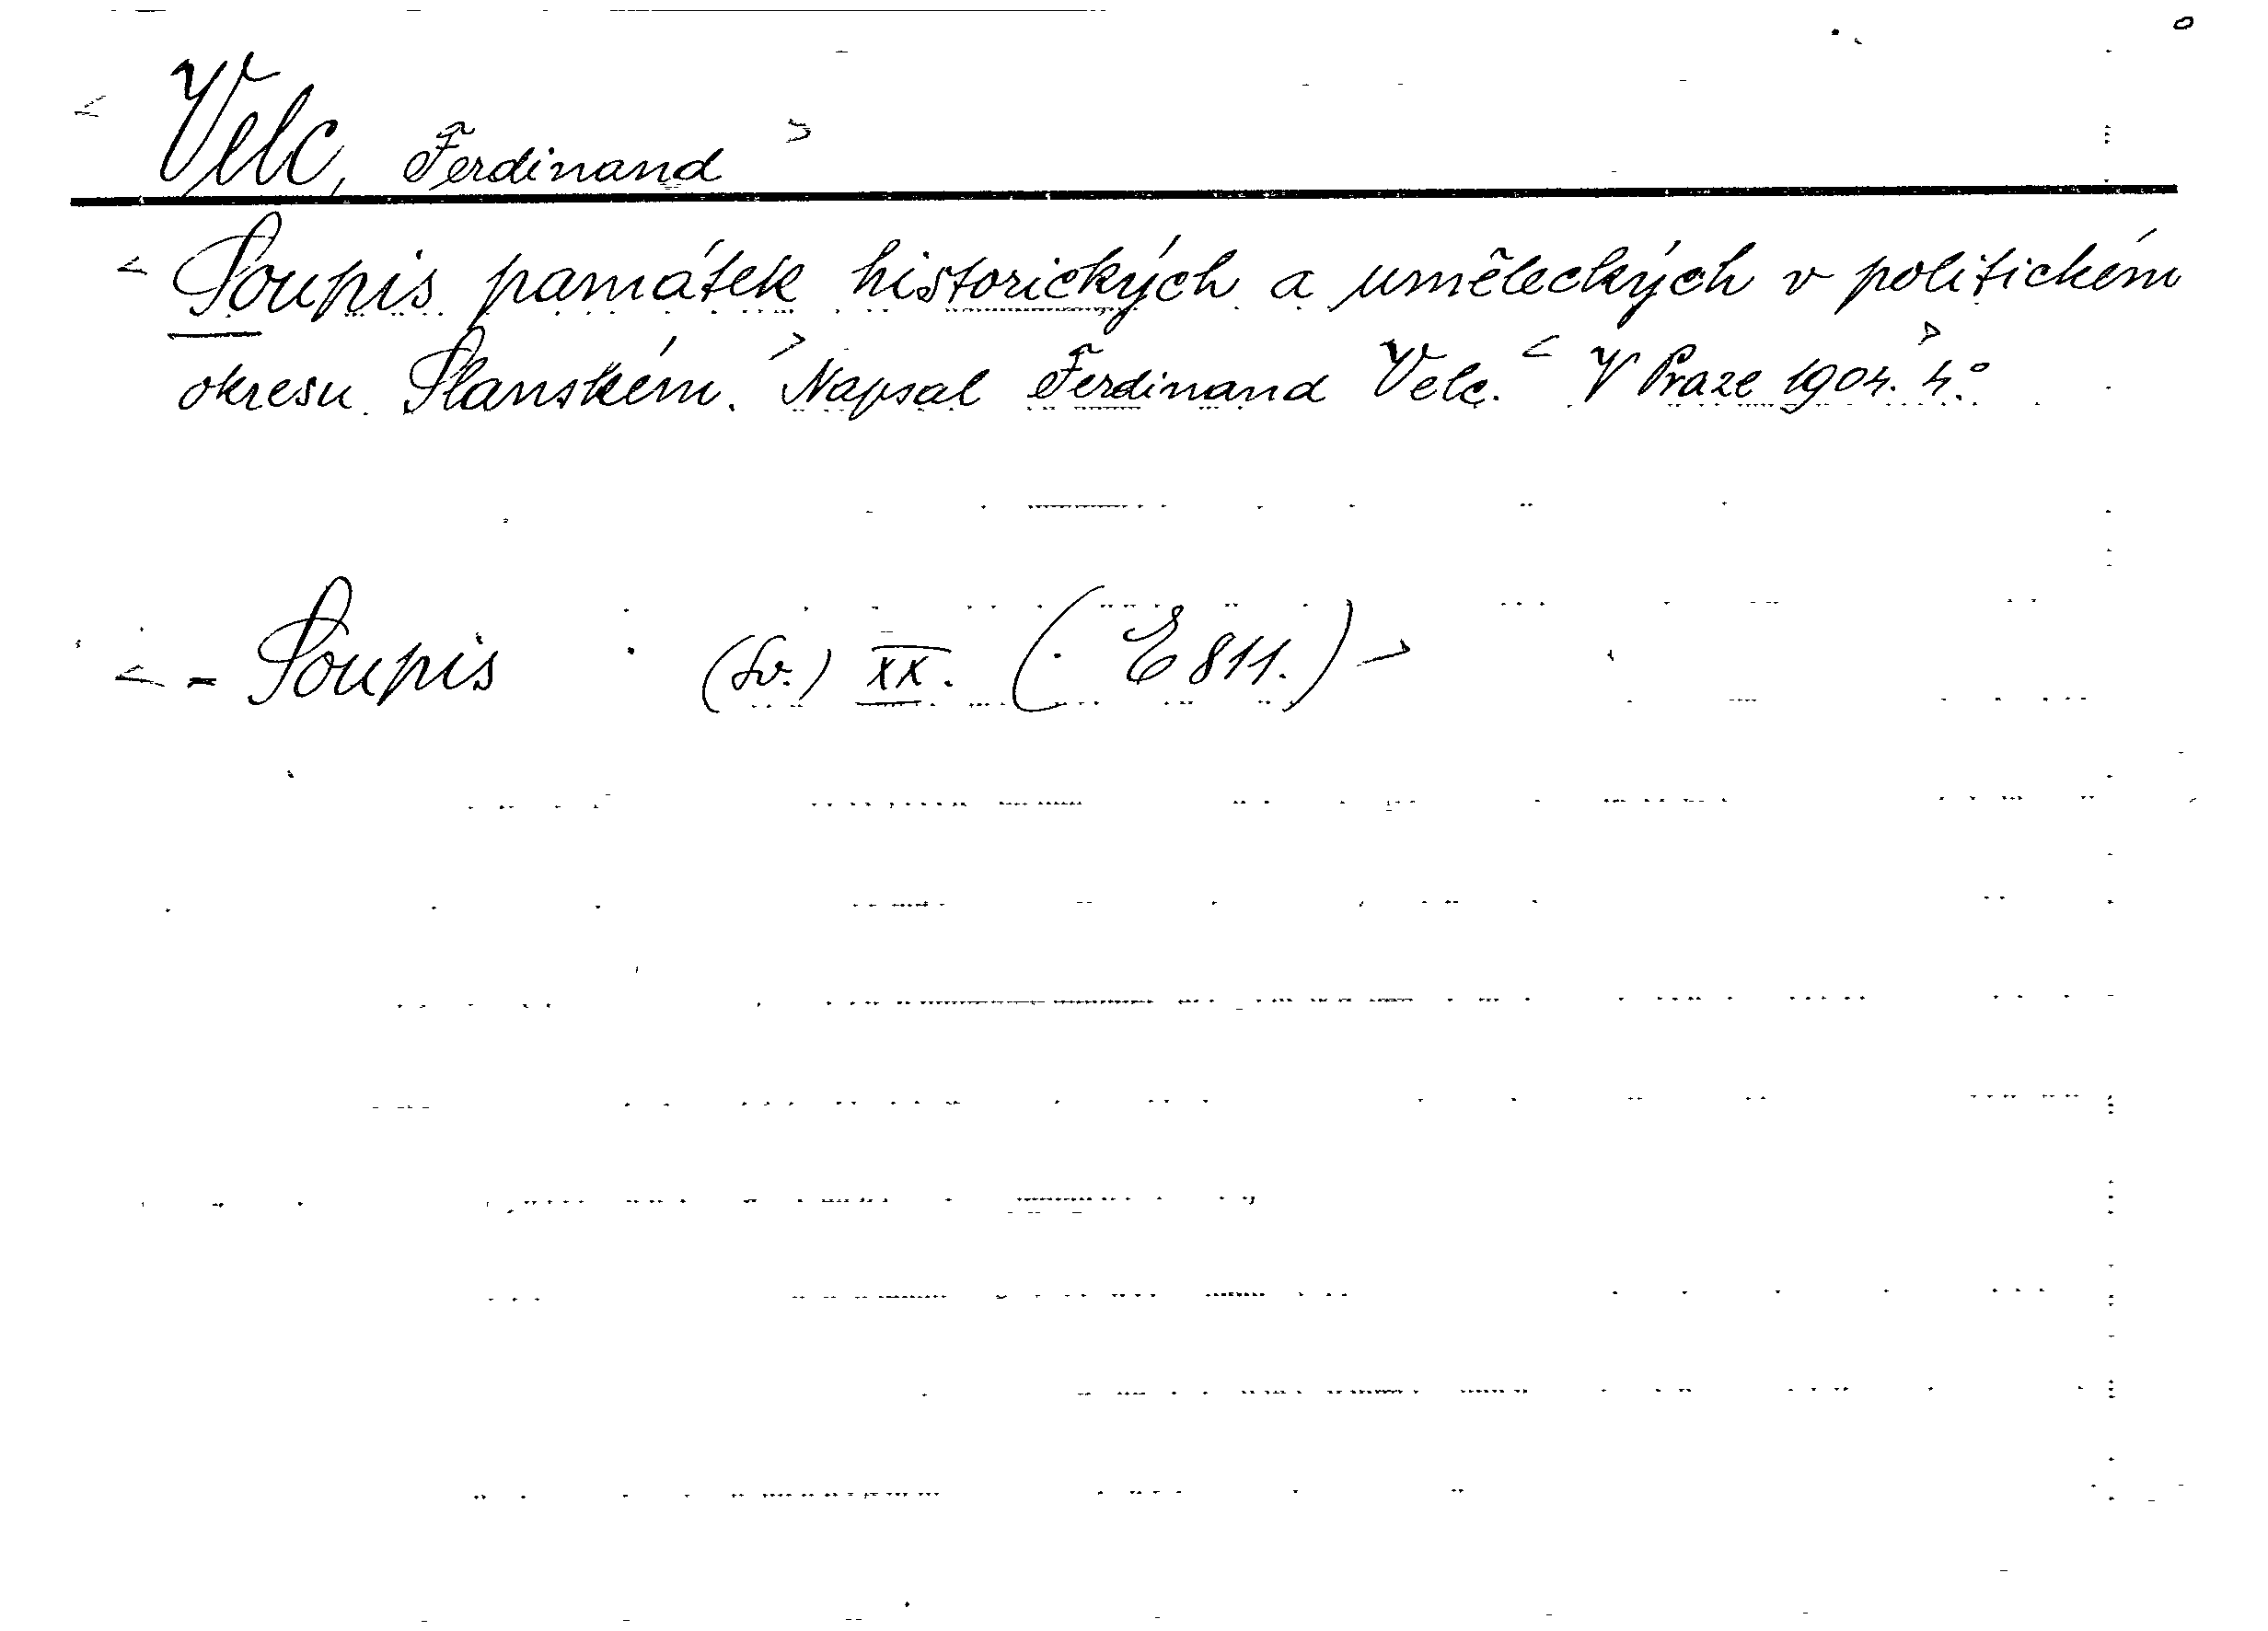 < Velc, Ferdinand >
< Soupis památek historických a uměleckých v politickém
okresu Slanském. > Napsal Ferdinand Velc. < V Praze 1904. > 4.°
< - Soupis (Sv.) XX. (E 811.) >